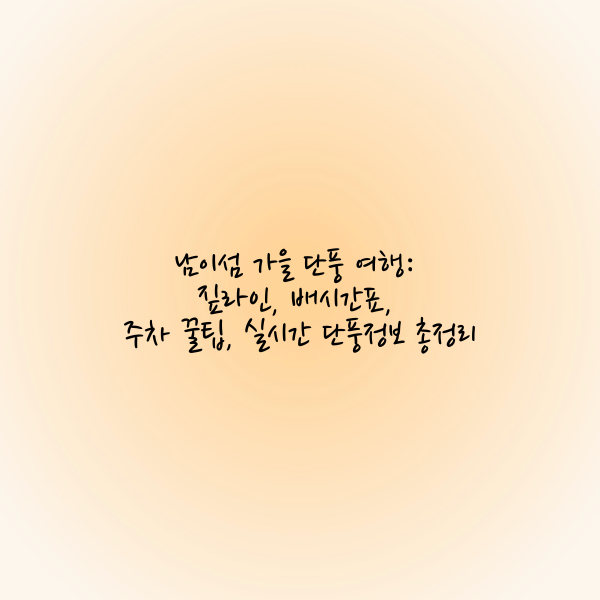 남이섬 가을 단풍 여행:
짚라인, 배시간표,
주차 꿀팁, 실시간 단풍정보 총정리